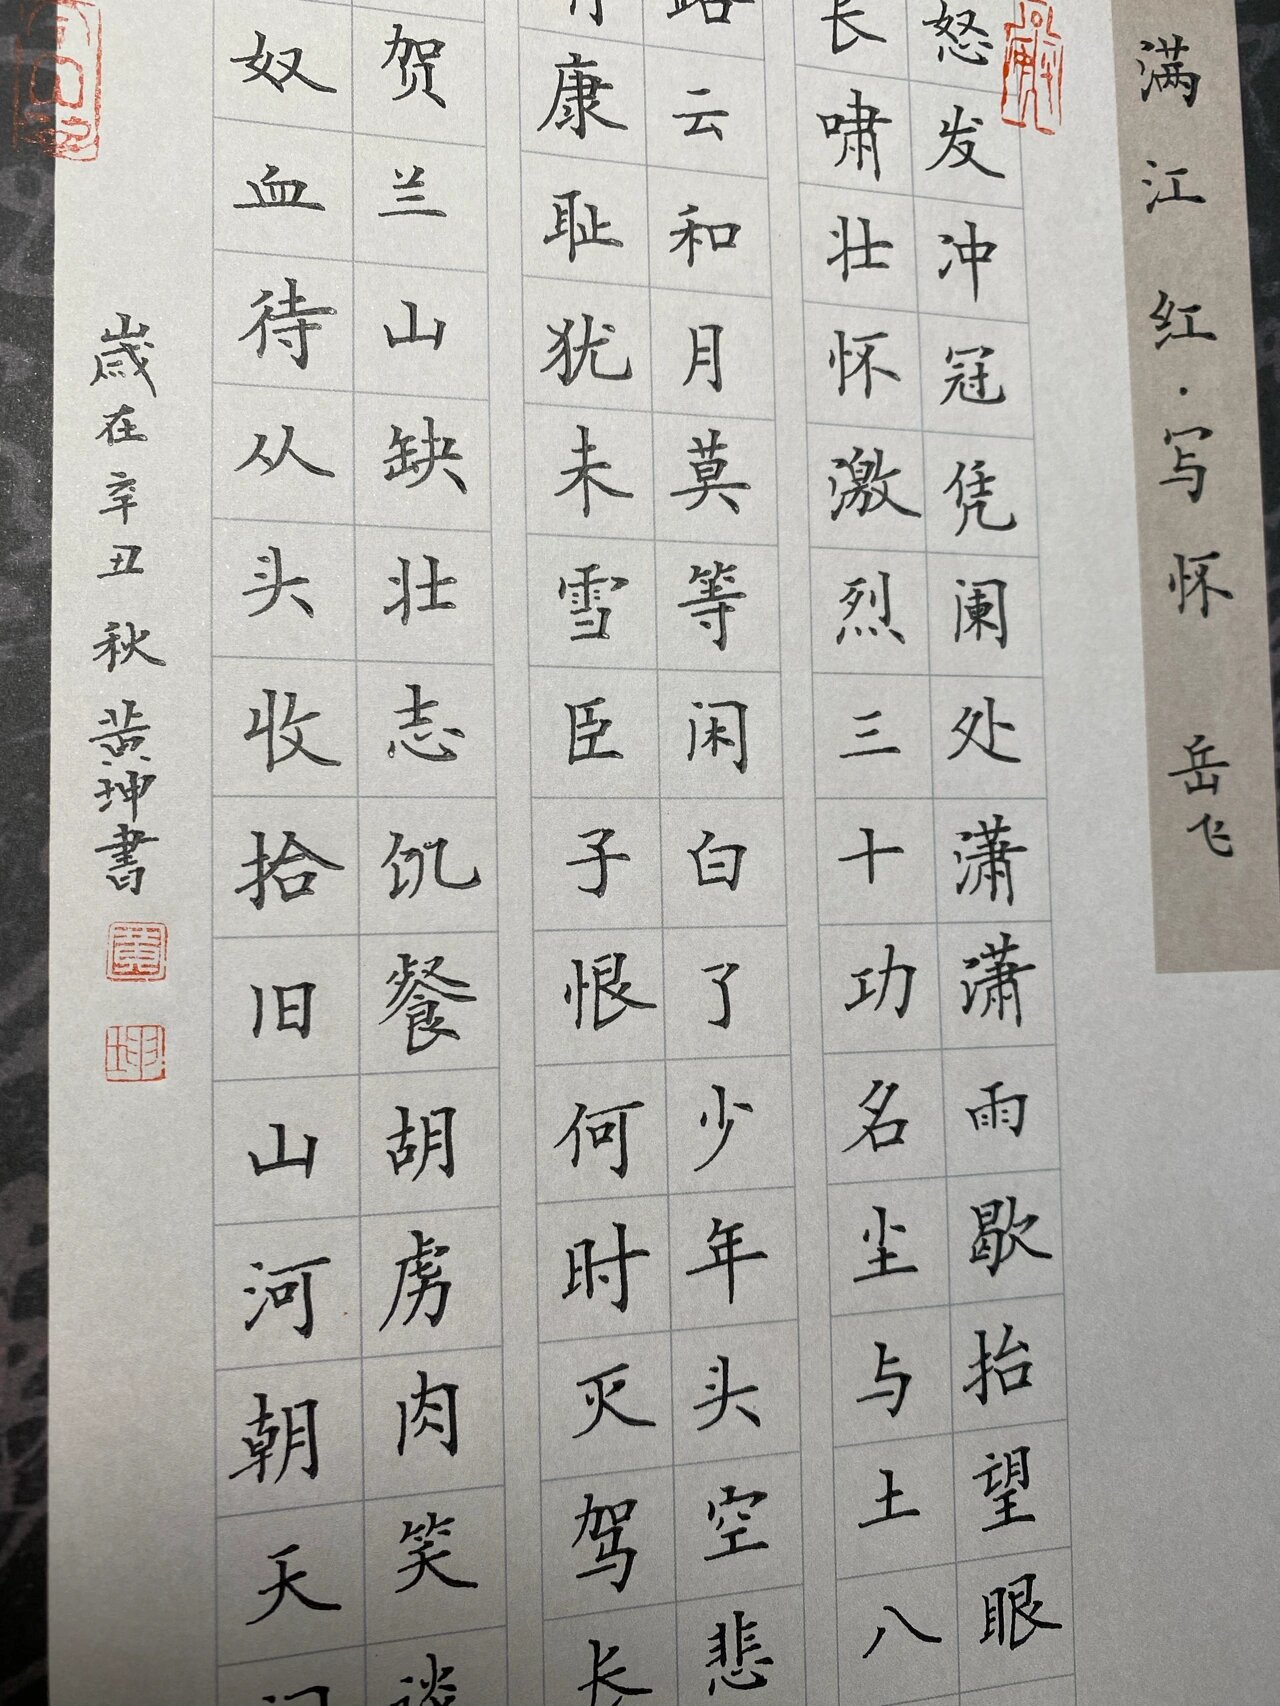 满江红·写怀 岳飞
怒发冲冠凭阑处潇潇雨歇抬望眼
长啸壮怀激烈三十功名尘与土八
路云和月莫等闲白了少年头空悲
康耻犹未雪臣子恨何时灭驾长
贺兰山缺壮志饥餐胡虏肉笑谈
奴血待从头收拾旧山河朝天
歲在辛丑秋黄坤書
黄
坤